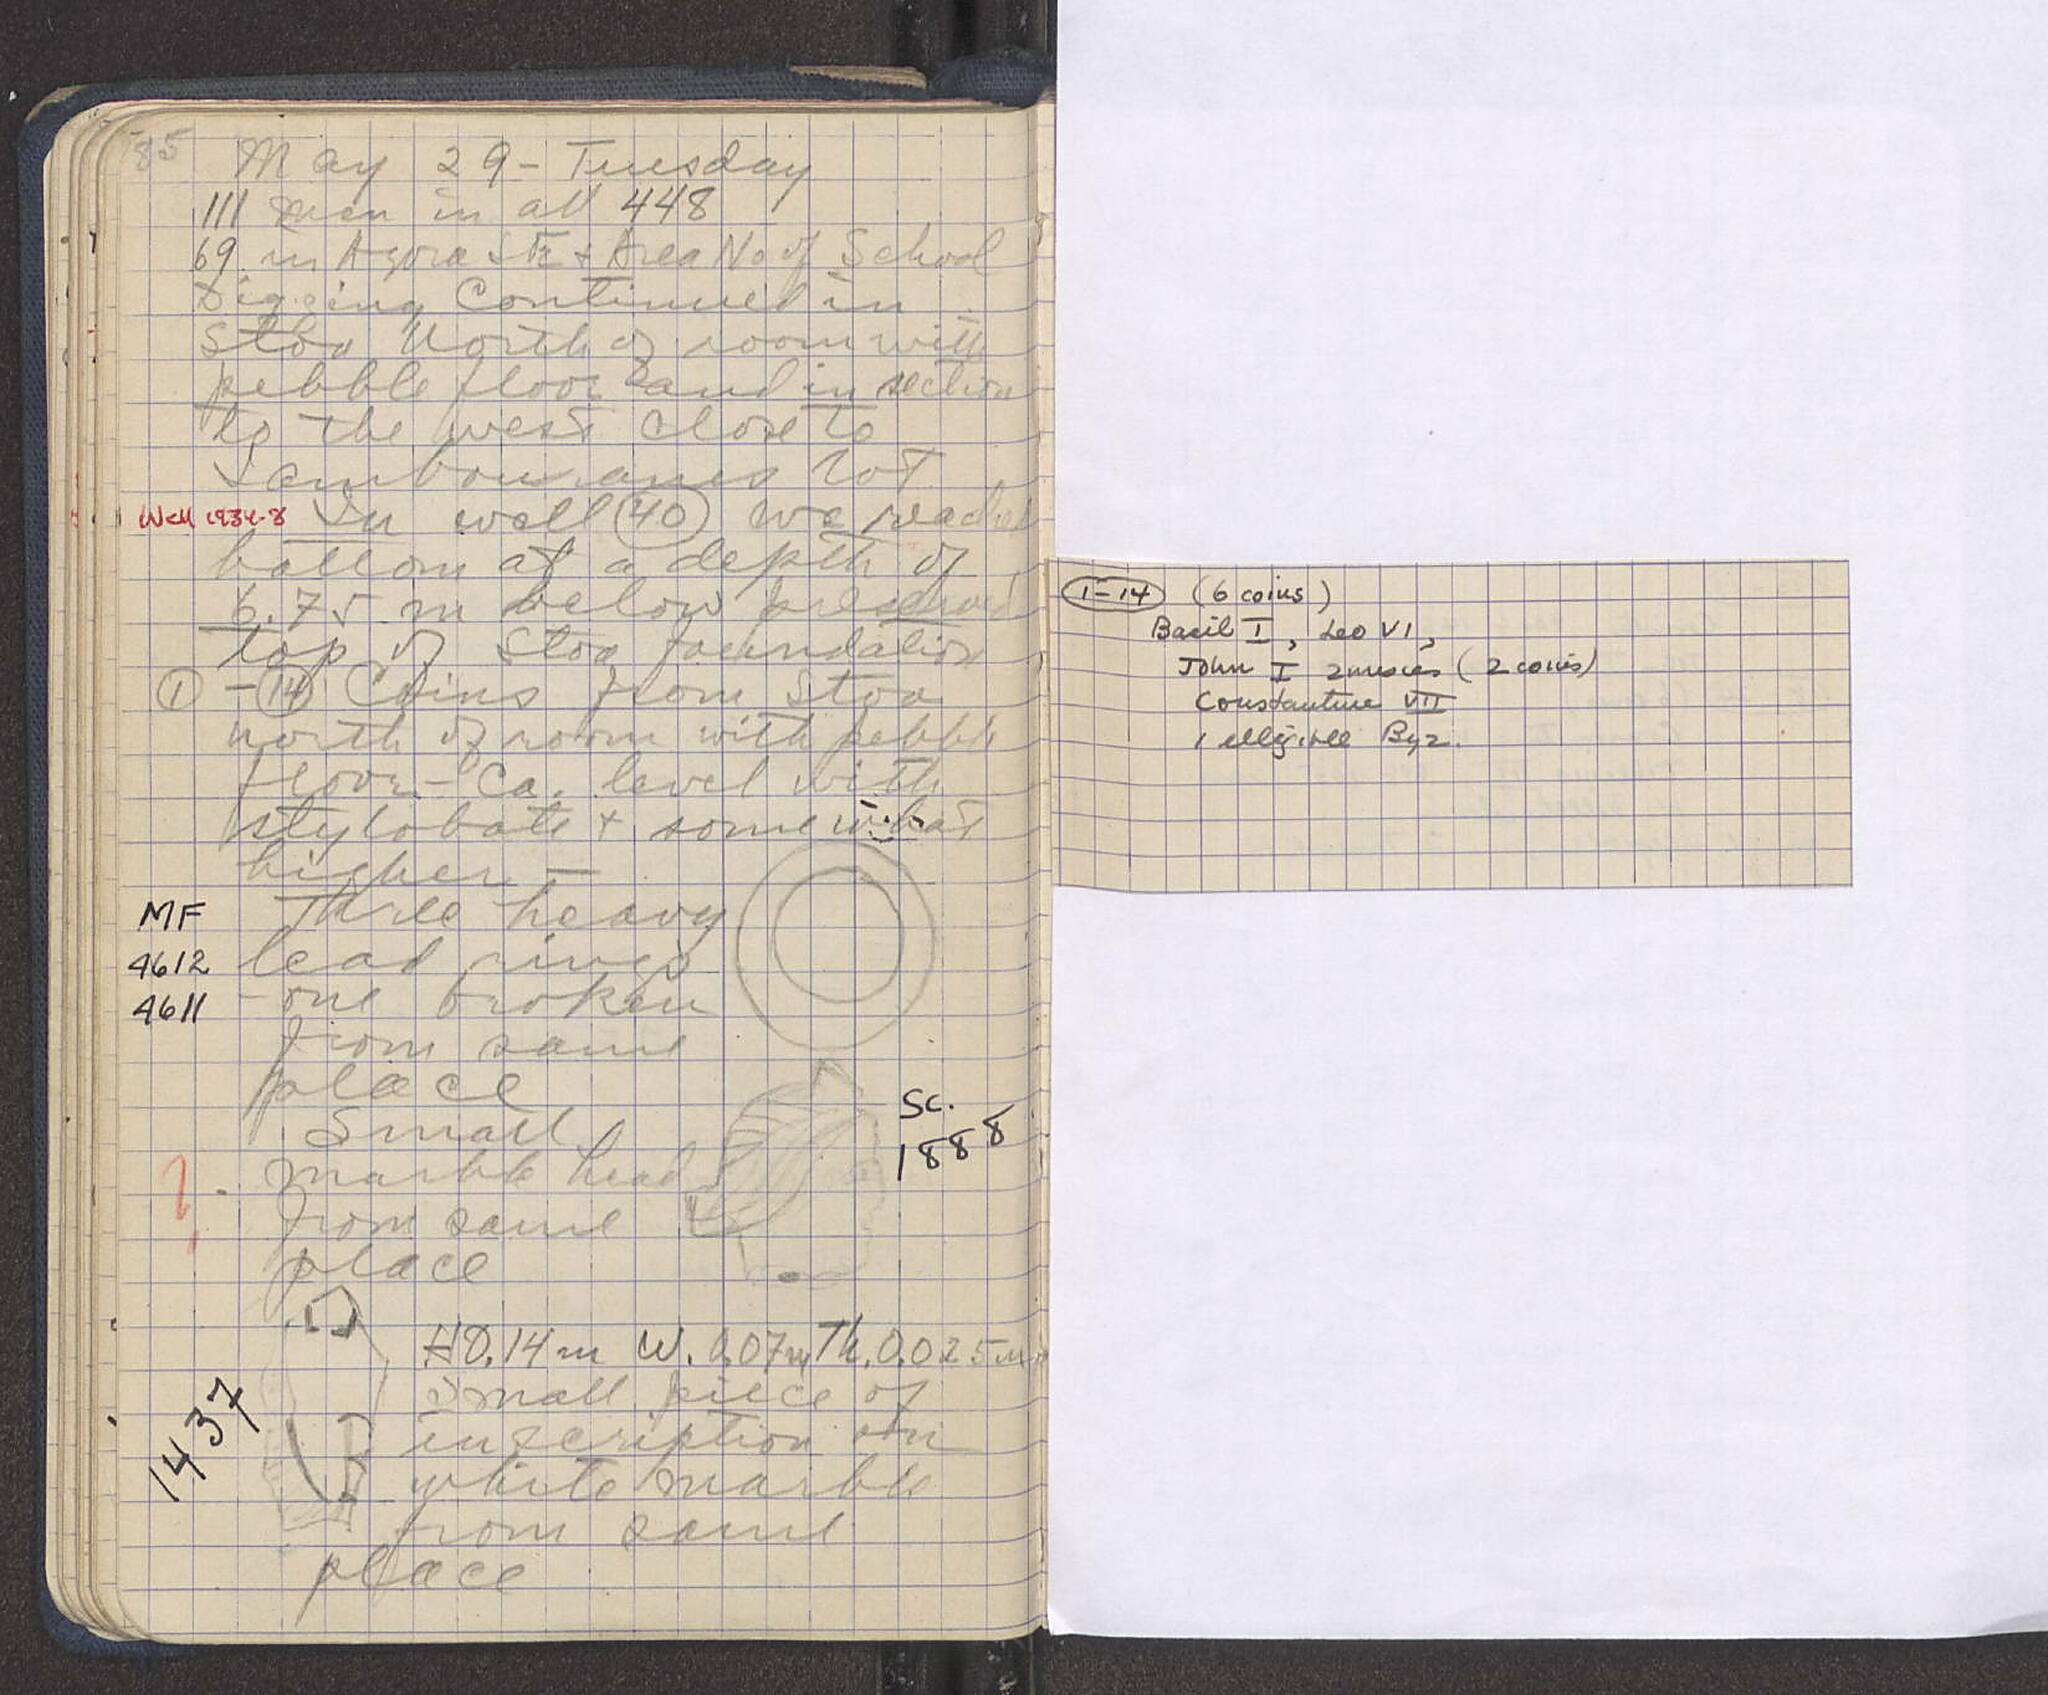 85
May 29 - Tuesday
111 men in all 448
69 in Agora SE + Area No of School
Digging continued in
Stoa North of room with
pebble floor and in section
to the west close to
Lambouranes lot
Well 1934-8 In well 40 we reached
bottom at a depth of
6.75 m below preserved
top of Stoa foundation
1 - 14 Coins from Stoa
north of room with pebble
floor - Ca. level with
stylobate + somewhat
higher -
MF Three heavy
4612 lead rings
4611 - one broken
from same
place
Sc.
1888
Small
? marble head
from same
place
H 0.14 m W. 0.07m Th. 0.025 m
1437
Small piece of
inscription on
white marble
from same
place
1-14 (6 coins)
Basil I, Leo VI,
John I Zimisces (2 coins)
Constantine VII
1 illegible Byz.